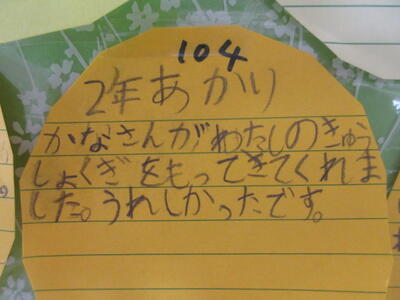 104
2年あかり
かなさんがわたしのきゅう
しょくぎをもってきてくれま
した。うれしかったです。